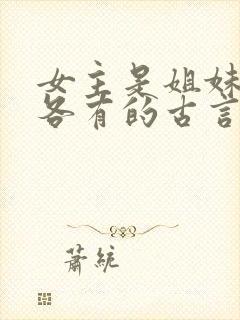 女主是姐妹
各有的古言
萧統